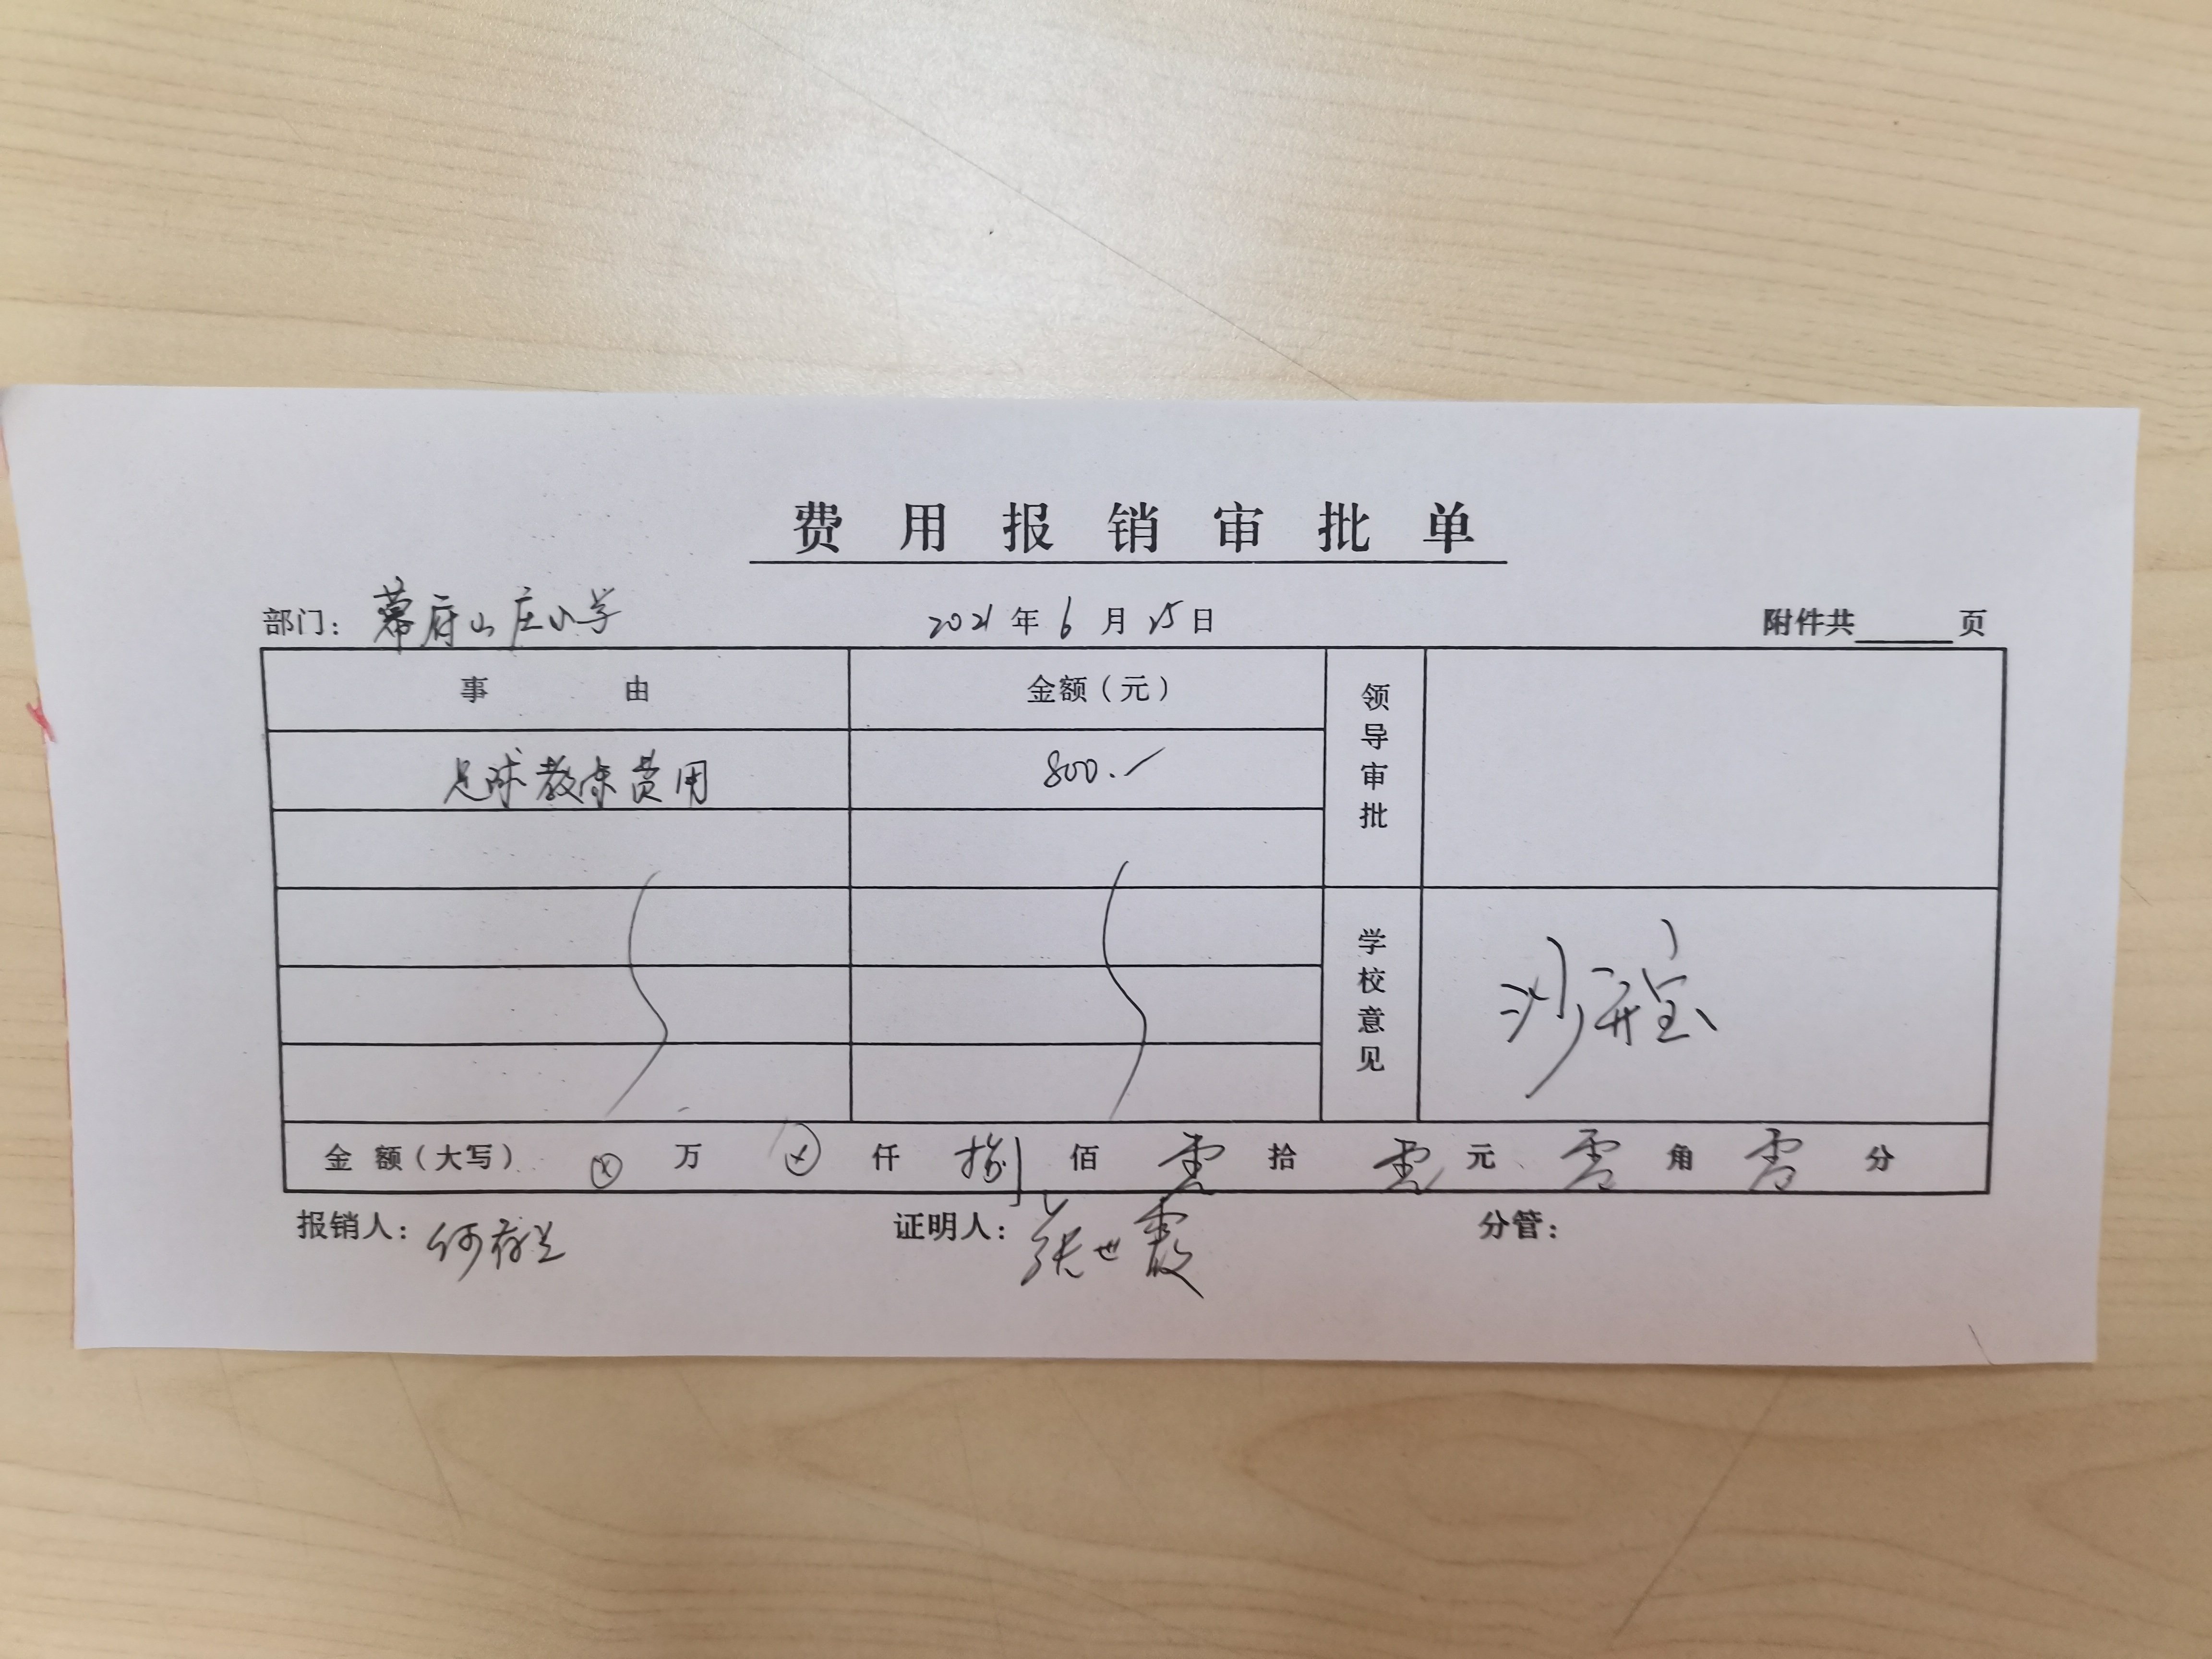 费用报销审批单
部门: 幕府山庄小学 2021年6月25日 附件共 页
事由 金额（元） 领导审批
足球教练费用 800.-
学校意见
金额（大写） ⊗万 ⊗仟 捌佰 零拾 零元 零角 零分
报销人: 何存兰 证明人: 张世霞 分管: